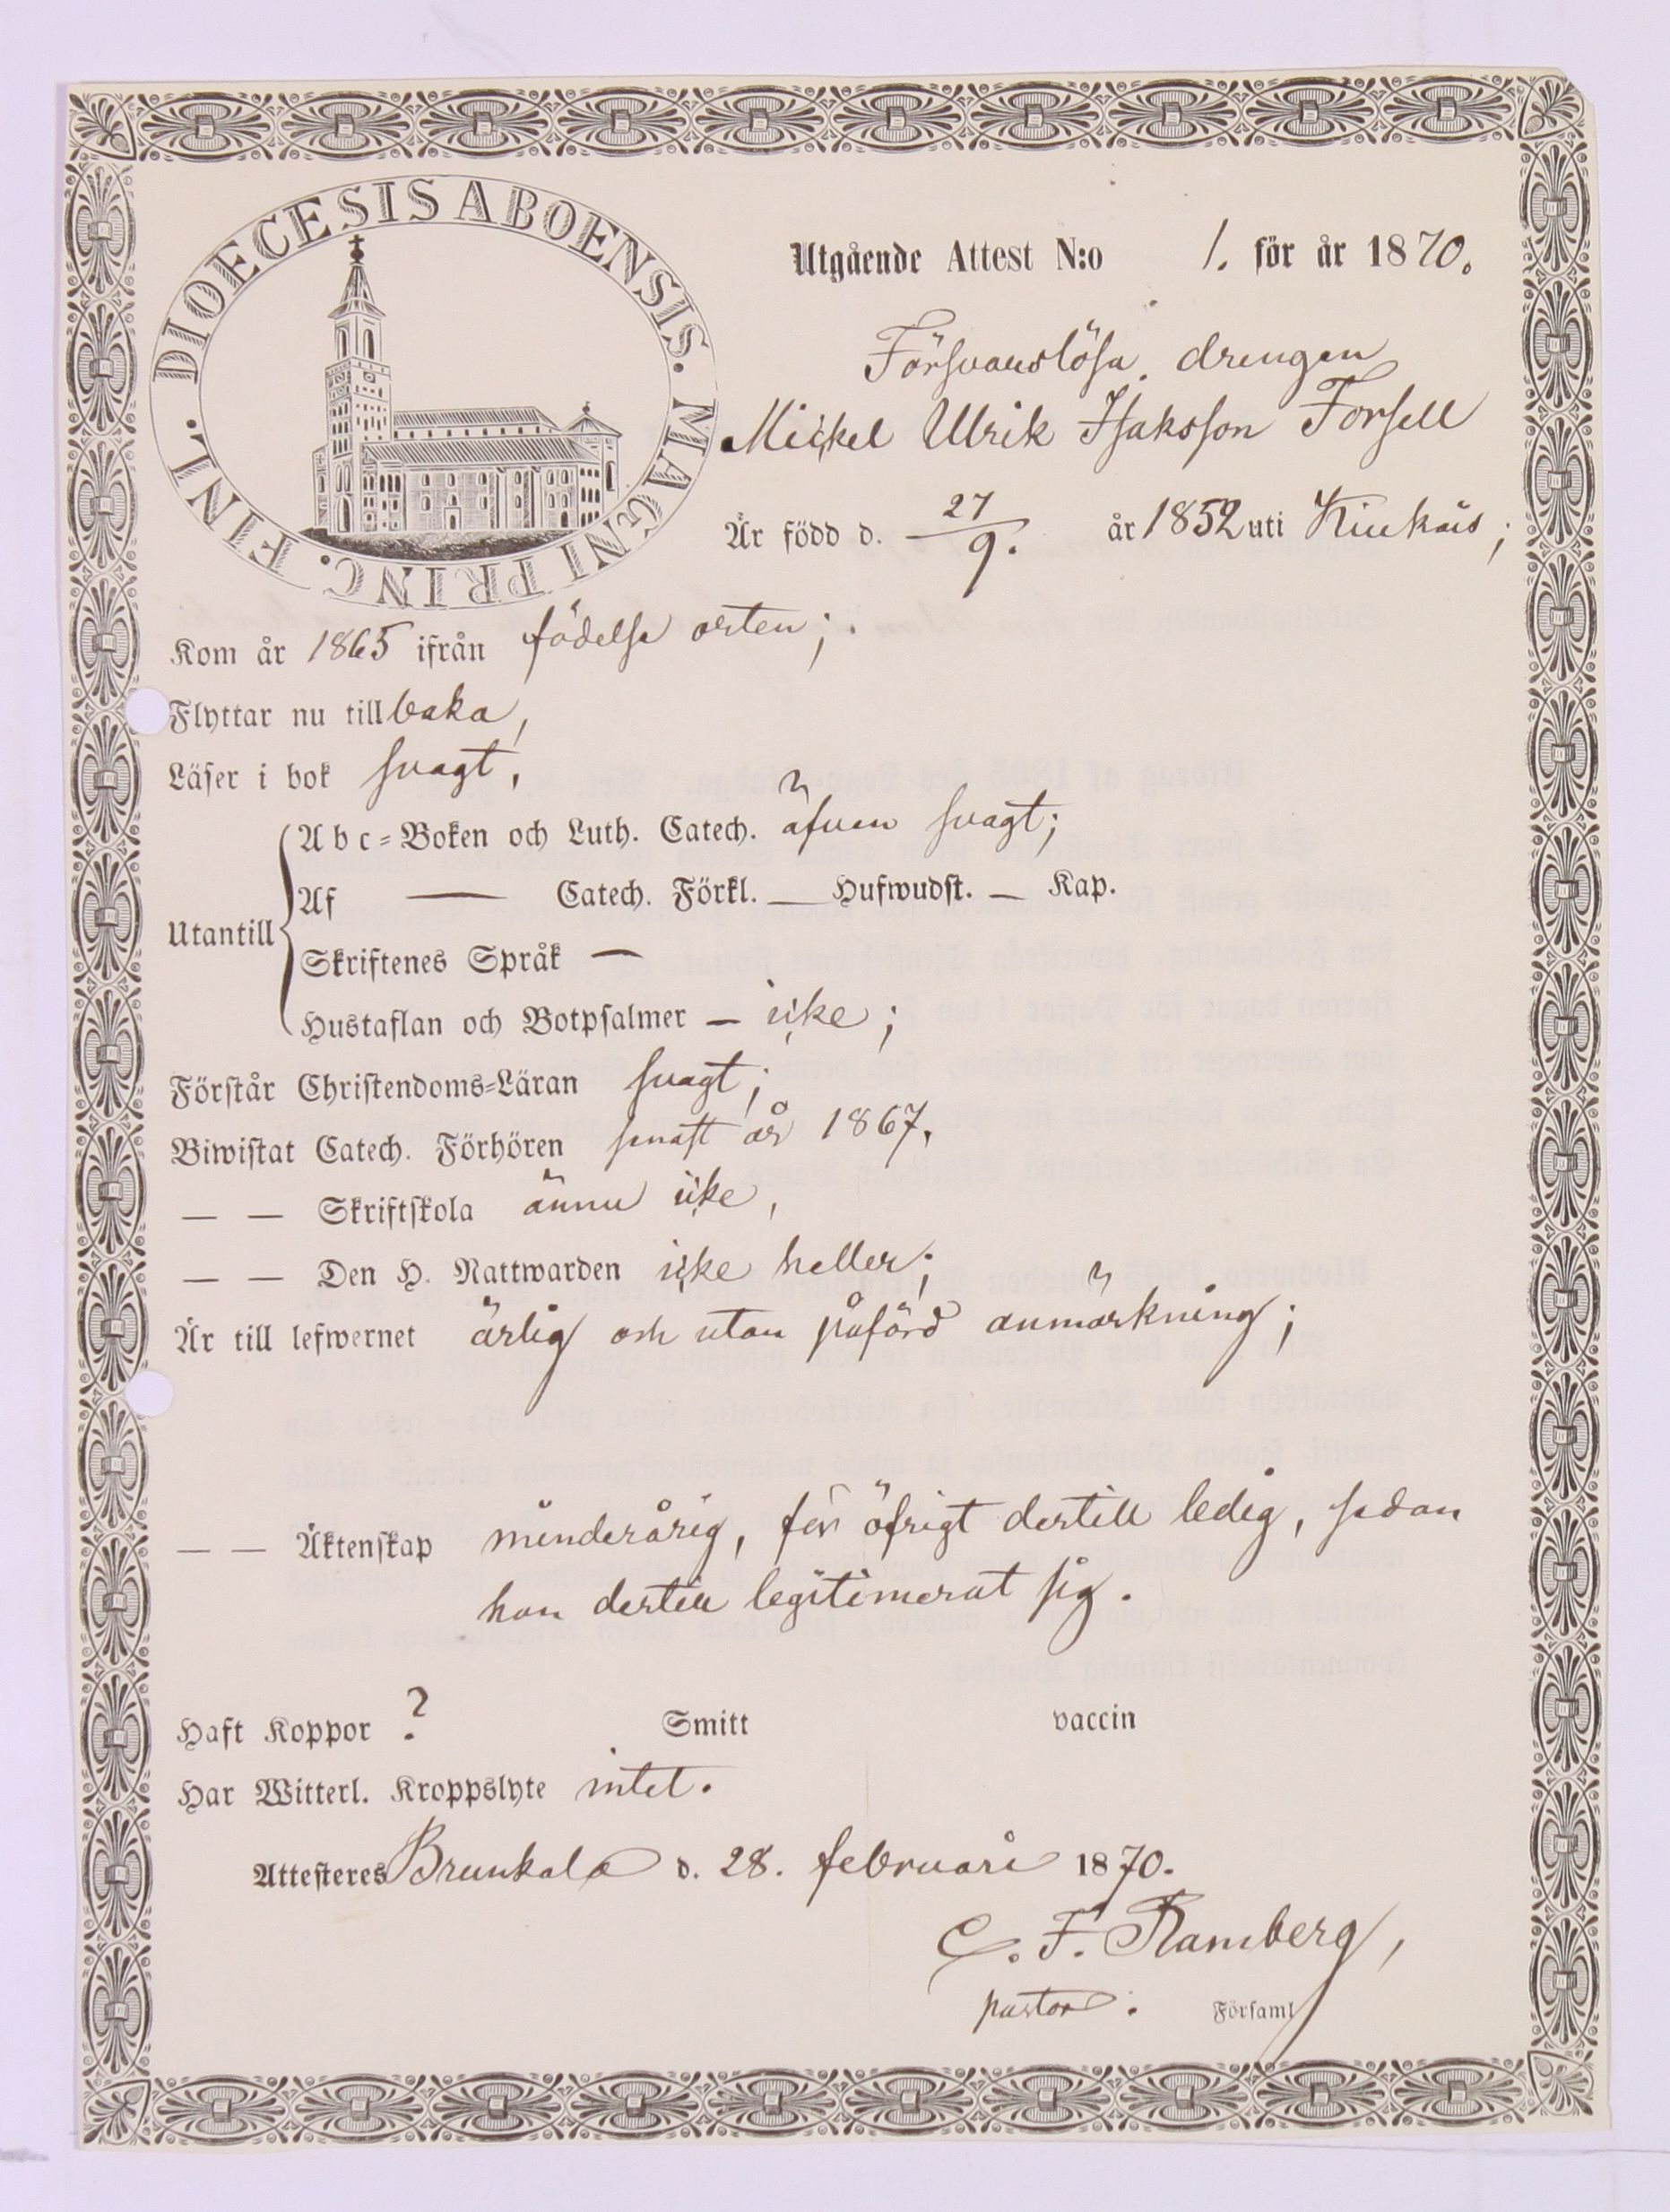 DIOECESIS ABOENSIS. MAGNI PRINC. FINL.
Utgående Attest N:o 1. för år 1870.
Försvarslösa drengen
Mickel Ulrik Isaksson Forsell
Är född d. 27/9. år 1852 uti Kiukais;
Kom år 1865 ifrån födelse orten;
Flyttar nu till baka,
Läser i bok svagt,
Utantill
Abc-Boken och Luth. Catech. äfven svagt;
Af — Catech. Förkl. — Hufwudst. — Kap.
Skriftenes Språk —
Hustaflan och Botpsalmer — icke;
Förstår Christendoms-Läran svagt;
Biwistat Catech. Förhören senast år 1867.
— — Skriftskola ännu icke,
— — Den H. Nattwarden icke heller;
Är till lefwernet ärlig och utan påförd anmärkning;
— — Äktenskap minderårig, för öfrigt dertill ledig, sedan
han dertill legitimerat sig.
Haft Koppor ? Smitt vaccin
Har Witterl. Kroppslyte intet.
Attesteres Brunkala d. 28. februari 1870.
C. F. Ramberg,
pastor. Församl